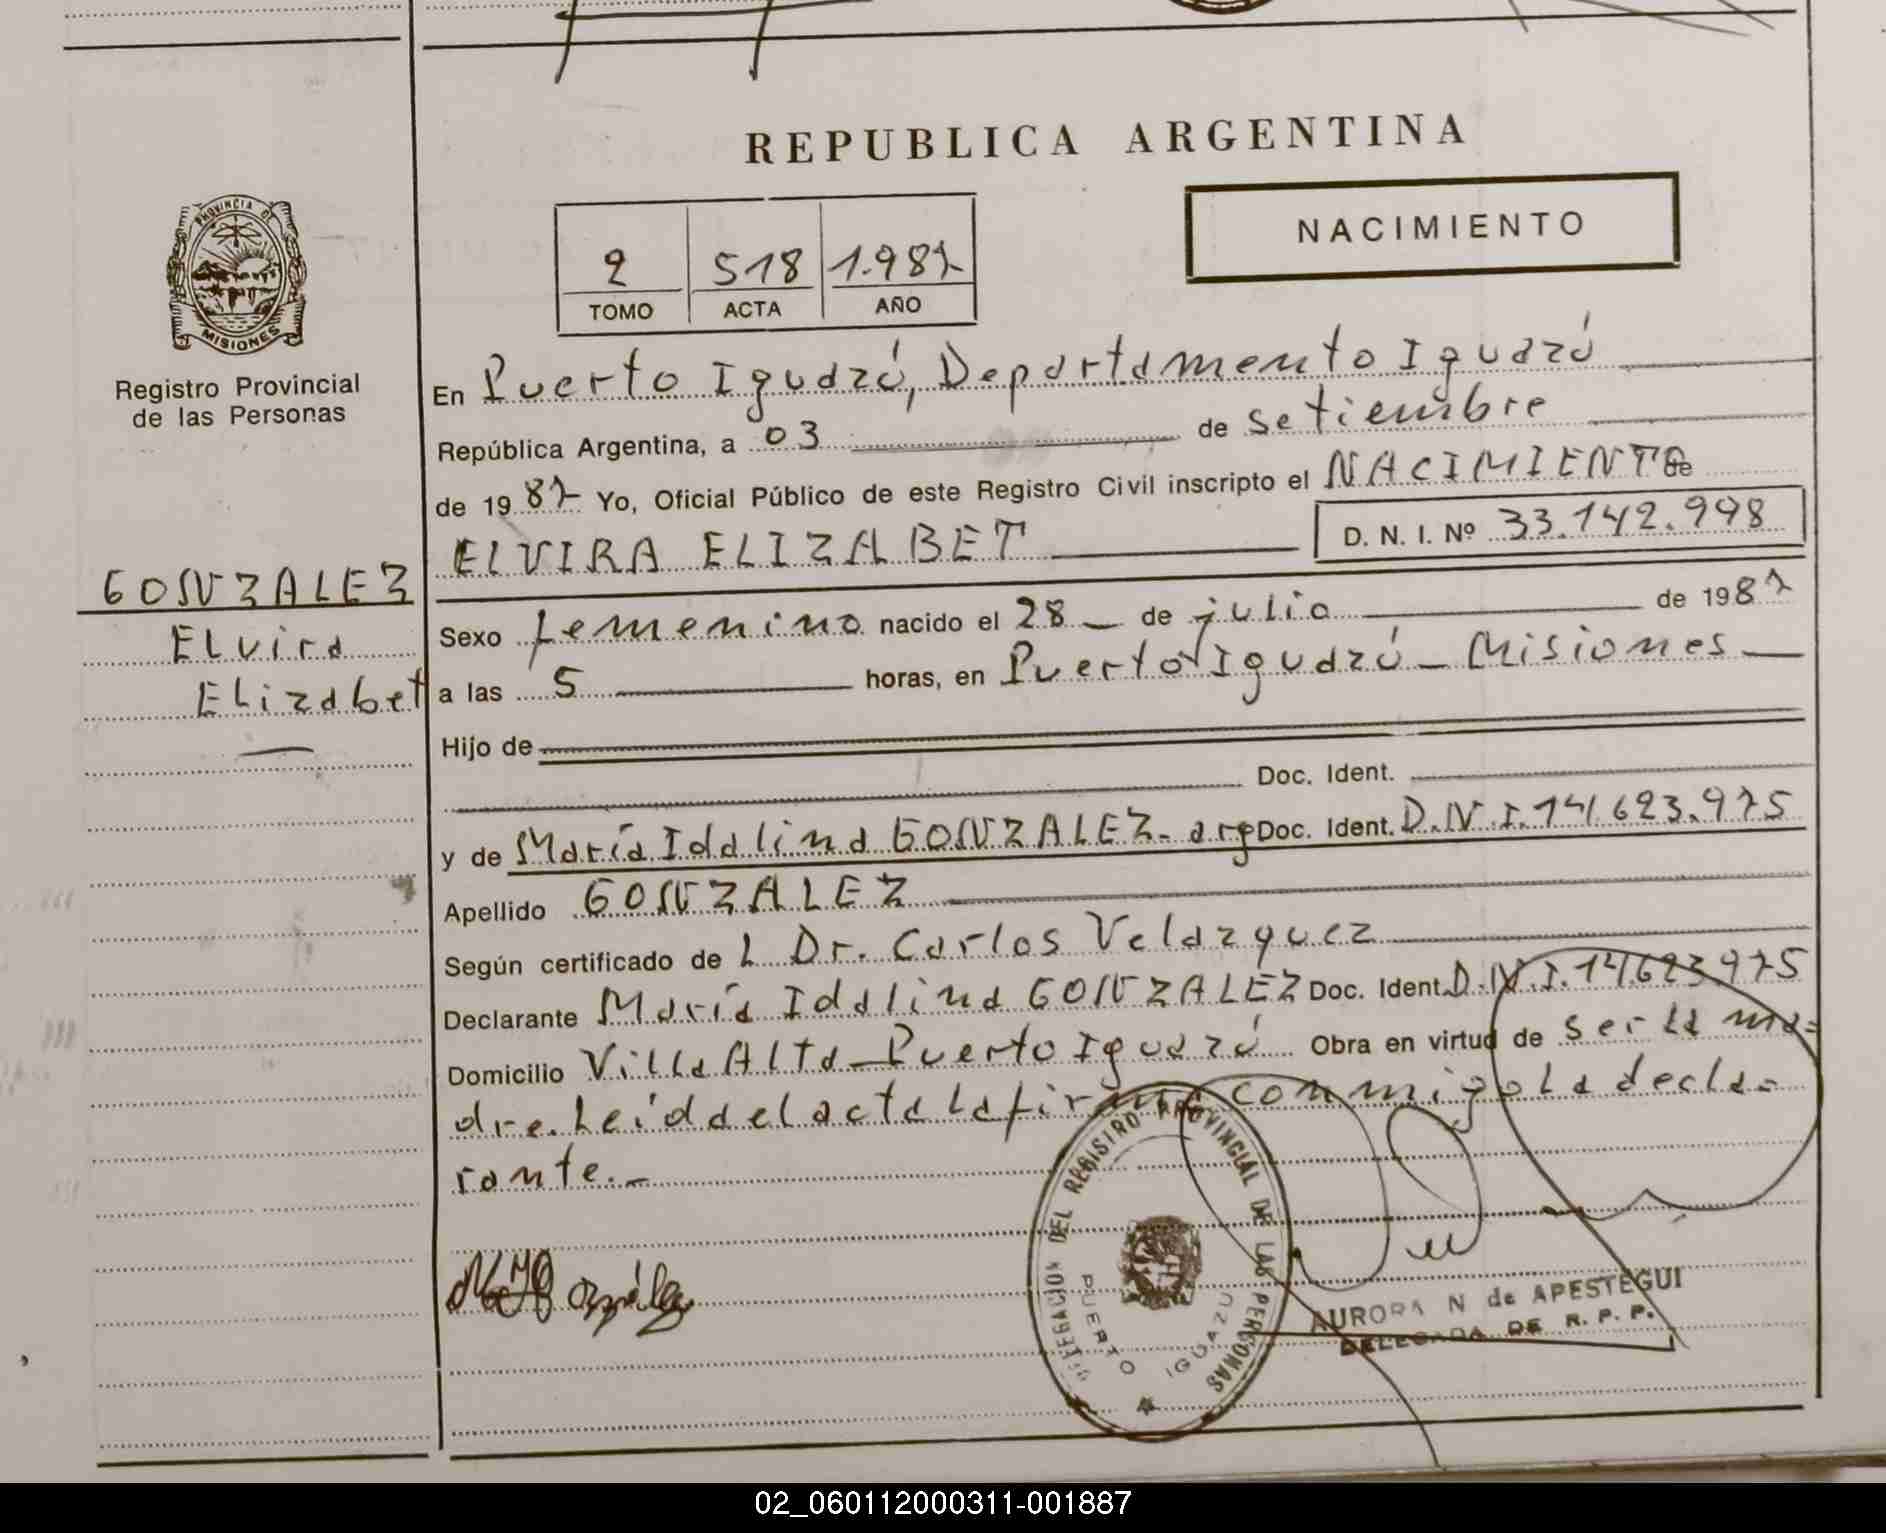 REPUBLICA ARGENTINA
NACIMIENTO
2 518 1.987
TOMO ACTA AÑO
PROVINCIA DE
MISIONES
Registro Provincial
de las Personas
GONZALEZ
Elvira
Elizabet
En Puerto Iguazú, Departamento Iguazú
República Argentina, a 03 de setiembre
de 1987 Yo, Oficial Público de este Registro Civil inscripto el NACIMIENTO de
ELVIRA ELIZABET D. N. I. Nº 33.142.998
Sexo femenino nacido el 28 de julio de 1987
a las 5 horas, en Puerto Iguazú - Misiones
Hijo de
Doc. Ident.
y de María Idalina GONZALEZ. arg Doc. Ident. D.N.I. 14.623.975
Apellido GONZALEZ
Según certificado de L Dr. Carlos Velazquez
Declarante María Idalina GONZALEZ Doc. Ident. D.N.I. 14.623.975
Domicilio Villa Alta - Puerto Iguazú Obra en virtud de ser la ma=
dre. Leída el acta la firma conmigo la decla=
rante.-
DELEGACION DEL REGISTRO PROVINCIAL DE LAS PERSONAS
PUERTO IGUAZU
AURORA N de APESTEGUI
DELEGADA DE R. P. P.
02_060112000311-001887